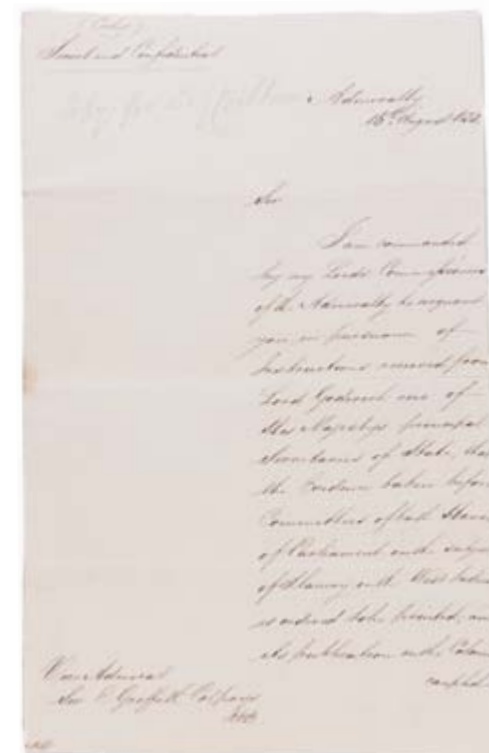 (Copy)
Secret and Confidential
Admiralty
16th August 1832
Sir
I am commanded
by my Lords Commissioners
of the Admiralty to acquaint
you in pursuance of
Instructions received from
Lord Goderich one of
His Majesty's principal
Secretaries of State, that
the Evidence taken before
Committees of both Houses
of Parliament on the subject
of Slavery in the West Indies
is ordered to be printed, and
its publication in the Colonies
Vice Admiral
Sir E. Griffith Colpoys
KCB